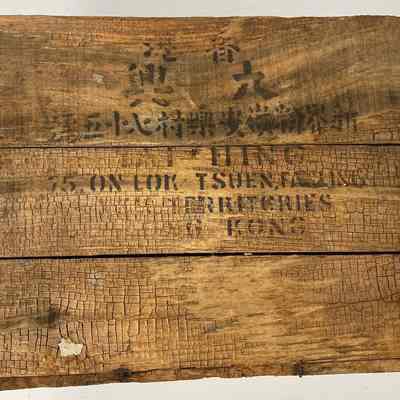 香港
興
新界粉嶺安樂村七十五號
HING
75 ON LOK TSUEN, FANLING
TERRITORIES
KONG